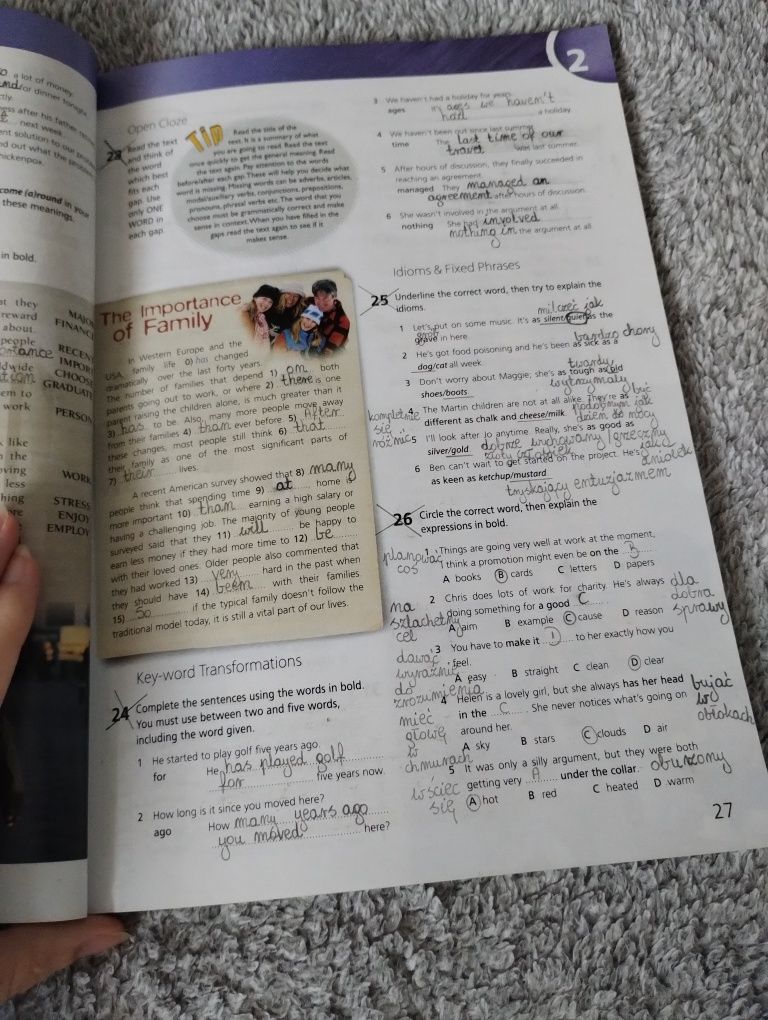 a lot of money.
for dinner tonight
ctly.
ess after his father
next week.
ent solution to our
d out what the
hickenpox.
come (a)round in
these meanings.
in bold.
at they
reward
about.
people
ortance
dwide
em to
work
k like
n the
oving
less
hing
MAJO
FINANC
RECEN
IMPOR
CHOOS
GRADUAT
PERSON
WORK
STRESS
ENJOY
EMPLOY
2
Open Cloze
23 Read the text
and think of
the word
which best
fits each
gap. Use
only ONE
WORD in
each gap.
TiP
Read the title of the
text. It is a summary of what
you are going to read. Read the text
once quickly to get the general meaning. Read
the text again. Pay attention to the words
before/after each gap. These will help you decide what
word is missing. Missing words can be adverbs, articles,
modals/auxiliary verbs, conjunctions, prepositions,
pronouns, phrasal verbs etc. The word that you
choose must be grammatically correct and make
sense in context. When you have filled in the
gaps read the text again to see if it
makes sense.
The Importance
of Family
In Western Europe and the
USA, family life 0) has changed
dramatically over the last forty years.
The number of families that depend 1) on both
parents going out to work, or where 2) there is one
parent raising the children alone, is much greater than it
3) has to be. Also, many more people move away
from their families 4) than ever before 5) After
these changes, most people still think 6) that
their family as one of the most significant parts of
7) their lives.
A recent American survey showed that 8) many
people think that spending time 9) at home is
more important 10) than earning a high salary or
having a challenging job. The majority of young people
surveyed said that they 11) will be happy to
earn less money if they had more time to 12) be
with their loved ones. Older people also commented that
they had worked 13) very hard in the past when
they should have 14) been with their families.
15) So if the typical family doesn't follow the
traditional model today, it is still a vital part of our lives.
Key-word Transformations
24 Complete the sentences using the words in bold.
You must use between two and five words,
including the word given.
1 He started to play golf five years ago.
for He has played golf
for five years now.
2 How long is it since you moved here?
ago How many years ago
you moved here?
3 We haven't had a holiday for years.
ages in ages we haven't
had a holiday.
4 We haven't been out since last summer.
time The last time of our
travel was last summer.
5 After hours of discussion, they finally succeeded in
reaching an agreement.
managed They managed an
agreement after hours of discussion.
6 She wasn't involved in the argument at all.
nothing She had involved
nothing in the argument at all.
Idioms & Fixed Phrases
25 Underline the correct word, then try to explain the
idioms.
milczeć jak
1 Let's put on some music. It's as silent/quiet as the
grób
grave in here.
bardzo chory
2 He's got food poisoning and he's been as sick as a
dog/cat all week.
twardy
3 Don't worry about Maggie; she's as tough as old
shoes/boots.
wytrzymały
być
kompletnie
się
różnić
4 The Martin children are not at all alike. They're as
different as chalk and cheese/milk.
podobnym jak
dzień do nocy
5 I'll look after Jo anytime. Really, she's as good as
silver/gold.
dobrze wychowany/grzeczny
złoty człowiek
jak
aniołek
6 Ben can't wait to get started on the project. He's
as keen as ketchup/mustard.
tryskający entuzjazmem
26 Circle the correct word, then explain the
expressions in bold.
planować
coś
1 Things are going very well at work at the moment,
I think a promotion might even be on the B
A books B cards C letters D papers
na
szlachetny
cel
2 Chris does lots of work for charity. He's always
doing something for a good C
dla
dobra
sprawy
A aim B example C cause D reason
3 You have to make it D to her exactly how you
feel.
dawać
wyraźnie
do
zrozumienia
A easy B straight C clean D clear
4 Helen is a lovely girl, but she always has her head
in the C. She never notices what's going on
around her.
mieć
głowę
w
chmurach
bujać
w
obłokach
A sky B stars C clouds D air
5 It was only a silly argument, but they were both
getting very A under the collar.
oburzony
wściec
się
A hot B red C heated D warm
27